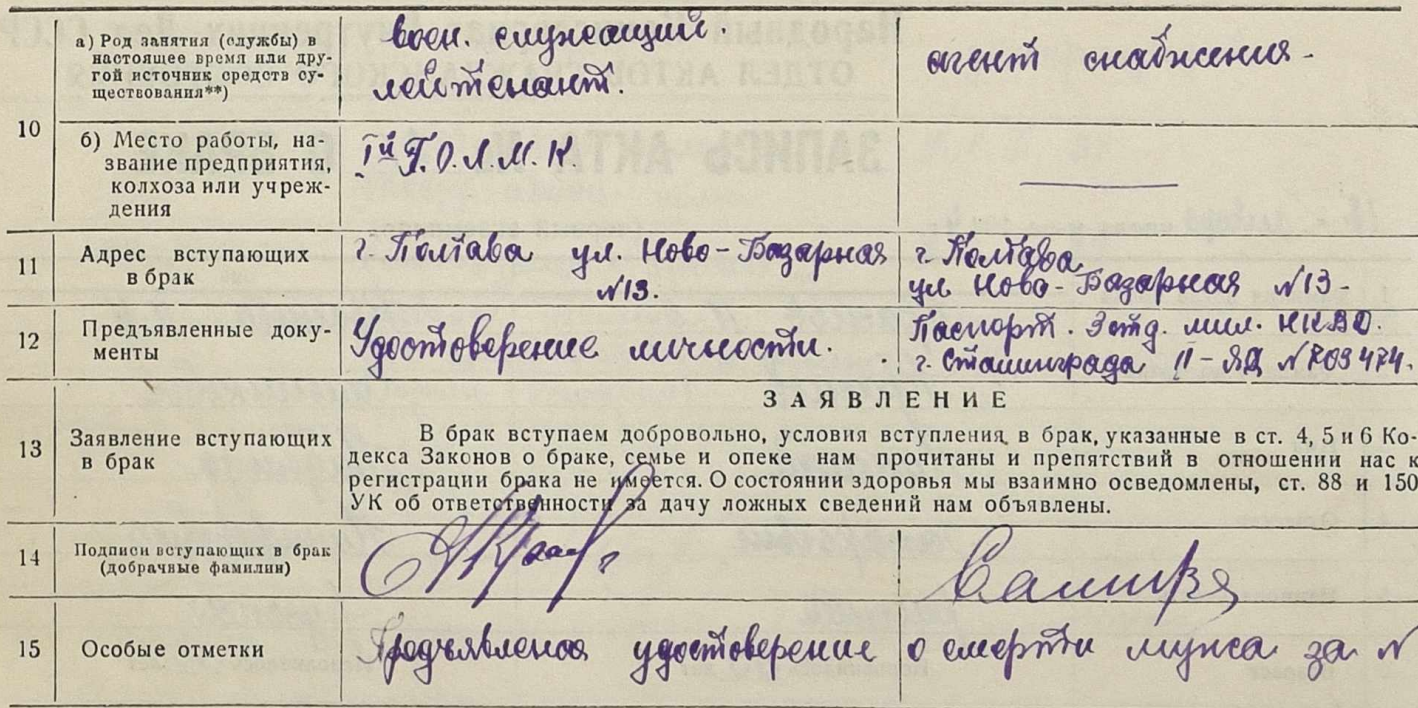 10
а) Род занятия (службы) в
настоящее время или дру-
гой источник средств су-
ществования**)
воен. служащий.
лейтенант.
агент снабжения -
б) Место работы, на-
звание предприятия,
колхоза или учреж-
дения
Iй П.О.Л.М.К.
11
Адрес вступающих
в брак
г. Полтава ул. Ново-Базарная
№13.
г. Полтава
ул Ново-Базарная №13-
12
Предъявленные доку-
менты
Удостоверение личности.
Паспорт. Эстд. мил. НКВД.
г. Сталинграда II-ЯД №709474.
13
Заявление вступающих
в брак
ЗАЯВЛЕНИЕ
В брак вступаем добровольно, условия вступления в брак, указанные в ст. 4, 5 и 6 Ко-
декса Законов о браке, семье и опеке нам прочитаны и препятствий в отношении нас к
регистрации брака не имеется. О состоянии здоровья мы взаимно осведомлены, ст. 88 и 150
УК об ответственности за дачу ложных сведений нам объявлены.
14
Подписи вступающих в брак
(добрачные фамилии)
15
Особые отметки
Предъявленоа удостоверение о смерти мужа за №